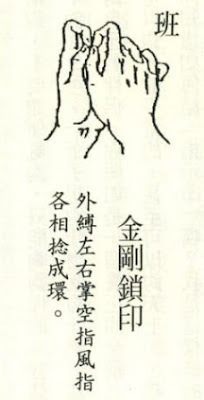 班
金剛鎖印
外縛左右掌空指風指
各相捻成環。